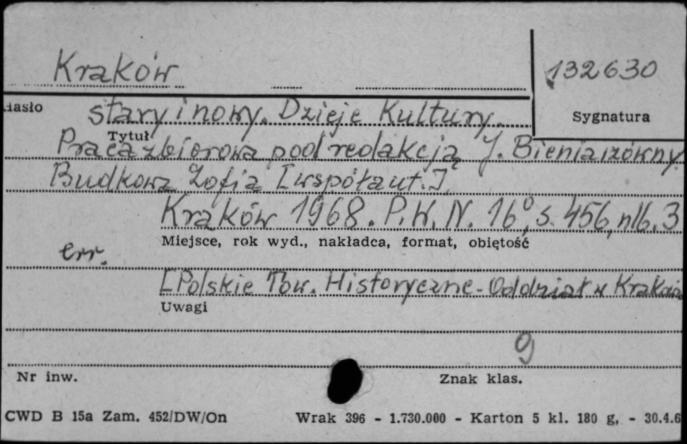 Kraków
132630
Hasło
stary i nowy. Dzieje Kultury.
Sygnatura
Tytuł
Praca zbiorowa pod redakcją J. Bieniarzówny
Budkowa Zofia [współaut.]
Kraków 1968. P.W.N. 16°, s. 456, nlb. 3
Miejsce, rok wyd., nakładca, format, objętość
err.
[Polskie Tow. Historyczne - Oddział w Krakowie
Uwagi
9
Nr inw.
Znak klas.
CWD B 15a Zam. 452/DW/On
Wrak 396 - 1.730.000 - Karton 5 kl. 180 g. - 30.4.6